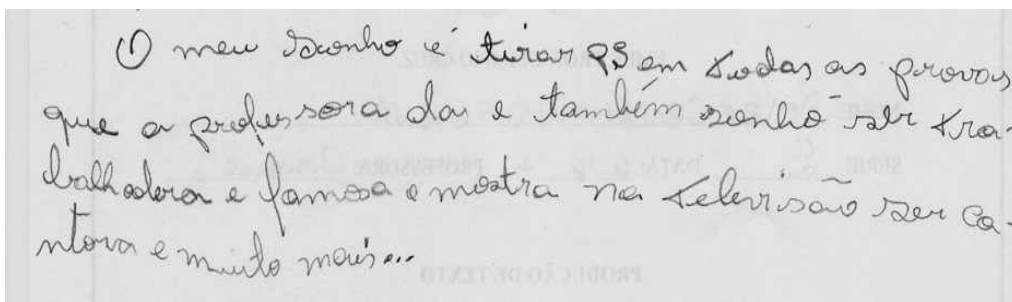 O meu sonho é tirar PS em todas as provas
que a professora das e também sonho ser tra-
balhadora e famosa e mostra na televisão ser ca-
ntora e muito mais...
PRODUÇÃO DE TEXTO